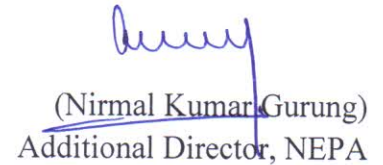 (Nirmal Kumar Gurung)
Additional Director, NEPA